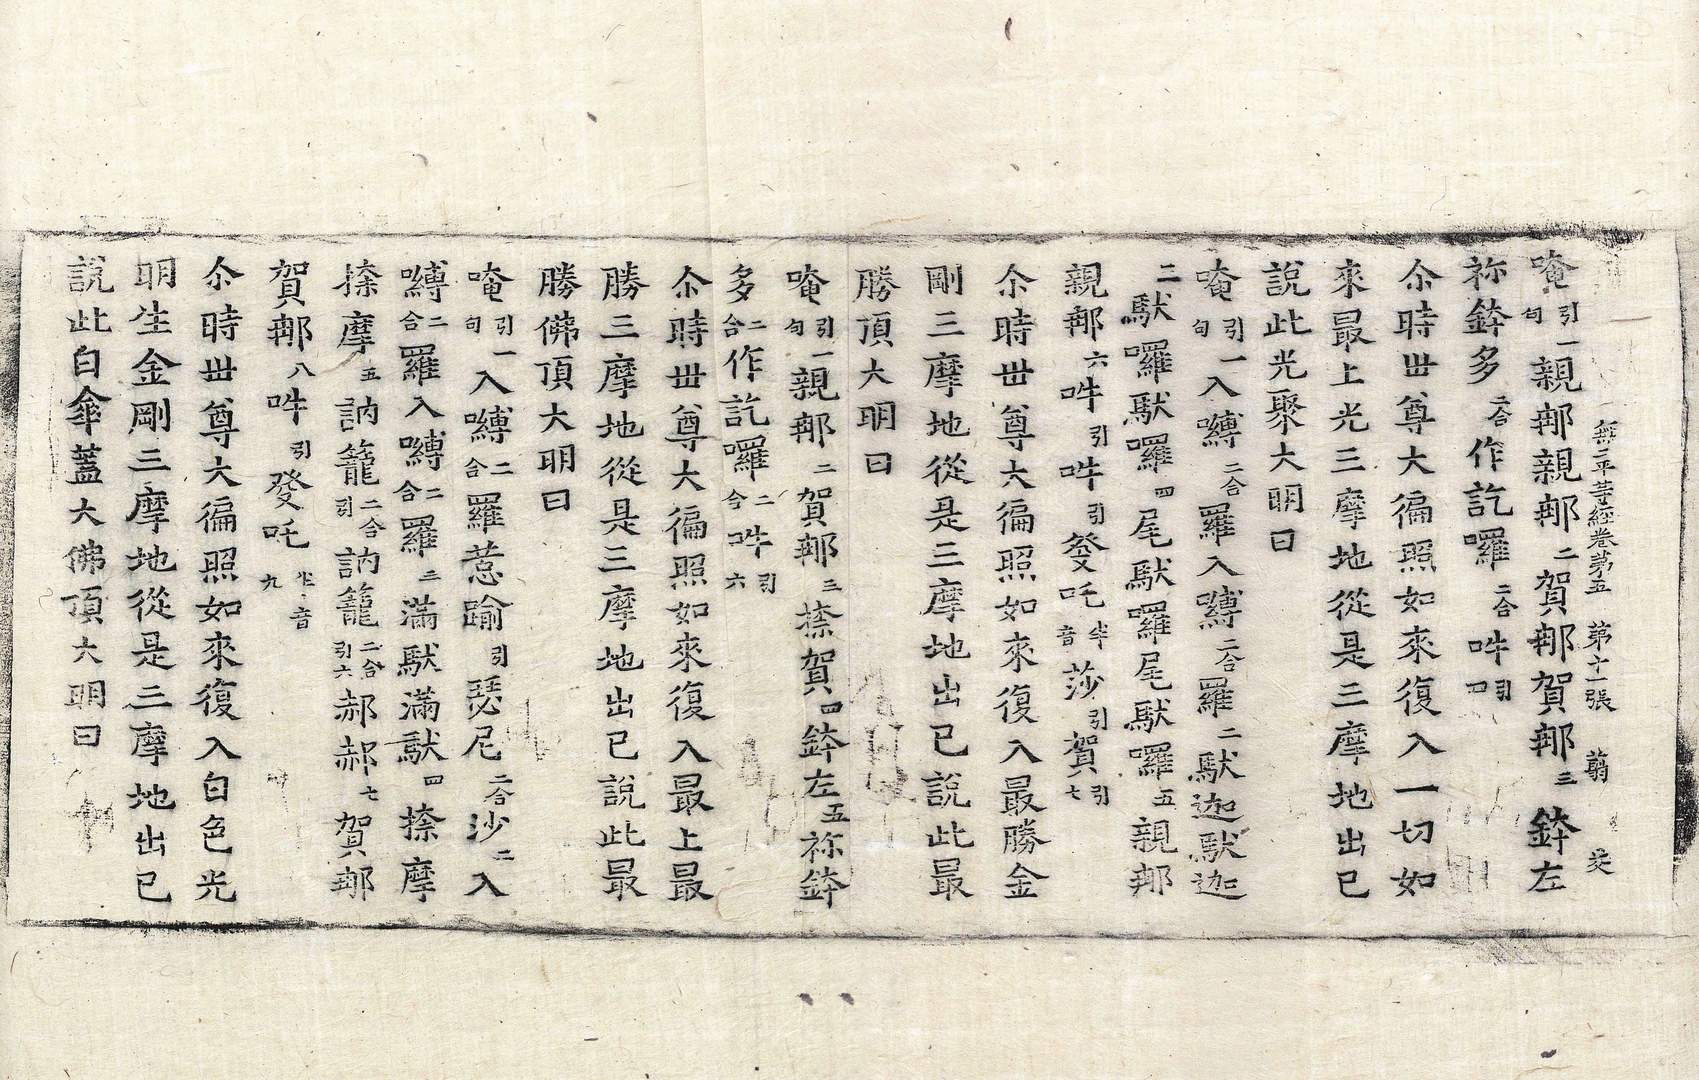 無二平等經卷第五 第十一張 翦
唵引一句親那親那二賀那賀那三鉢左
祢鉢多二合作訖囉二合吽引四
尒時世尊大徧照如來復入一切如
來最上光三摩地從是三摩地出已
說此光聚大明曰
唵引一句入嚩二合羅入嚩二合羅二馱迦馱迦
三馱囉馱囉四尾馱囉尾馱囉五親那
親那六吽引吽引發吒半音莎引賀引七
尒時世尊大徧照如來復入最勝金
剛三摩地從是三摩地出已說此最
勝頂大明曰
唵引一句親那二賀那三捺賀四鉢左五祢鉢
多二合作訖囉二合吽引六
尒時世尊大徧照如來復入最上最
勝三摩地從是三摩地出已說此最
勝佛頂大明曰
唵引一句入嚩二合羅惹踰引瑟尼二合沙二入
嚩二合羅入嚩二合羅三滿馱滿馱四捺摩
捺摩五訥籠二合引訥籠二合引六郝郝七賀那
賀那八吽引發吒半音九
尒時世尊大徧照如來復入白色光
明生金剛三摩地從是三摩地出已
說此白傘蓋大佛頂大明曰